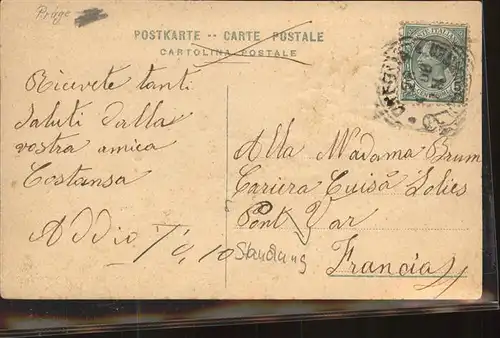 Präge
POSTKARTE -- CARTE POSTALE
CARTOLINA POSTALE
Ricevete tanti
saluti dalla
vostra amica
Costansa
Addio
Alla Madama Brum
Cariera Cuisä Solies
Pont Var
Francia